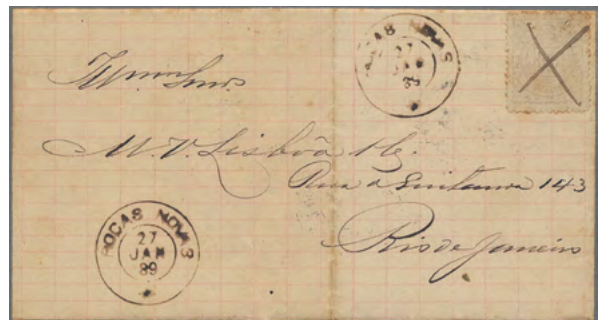 ROCAS NOVAS
27
JAN
89
Illmos Snrs.
M. V. Lisbôa & Cª.
Rua d Quitanda 143
Rio de Janeiro
ROCAS NOVAS
27
JAN
89